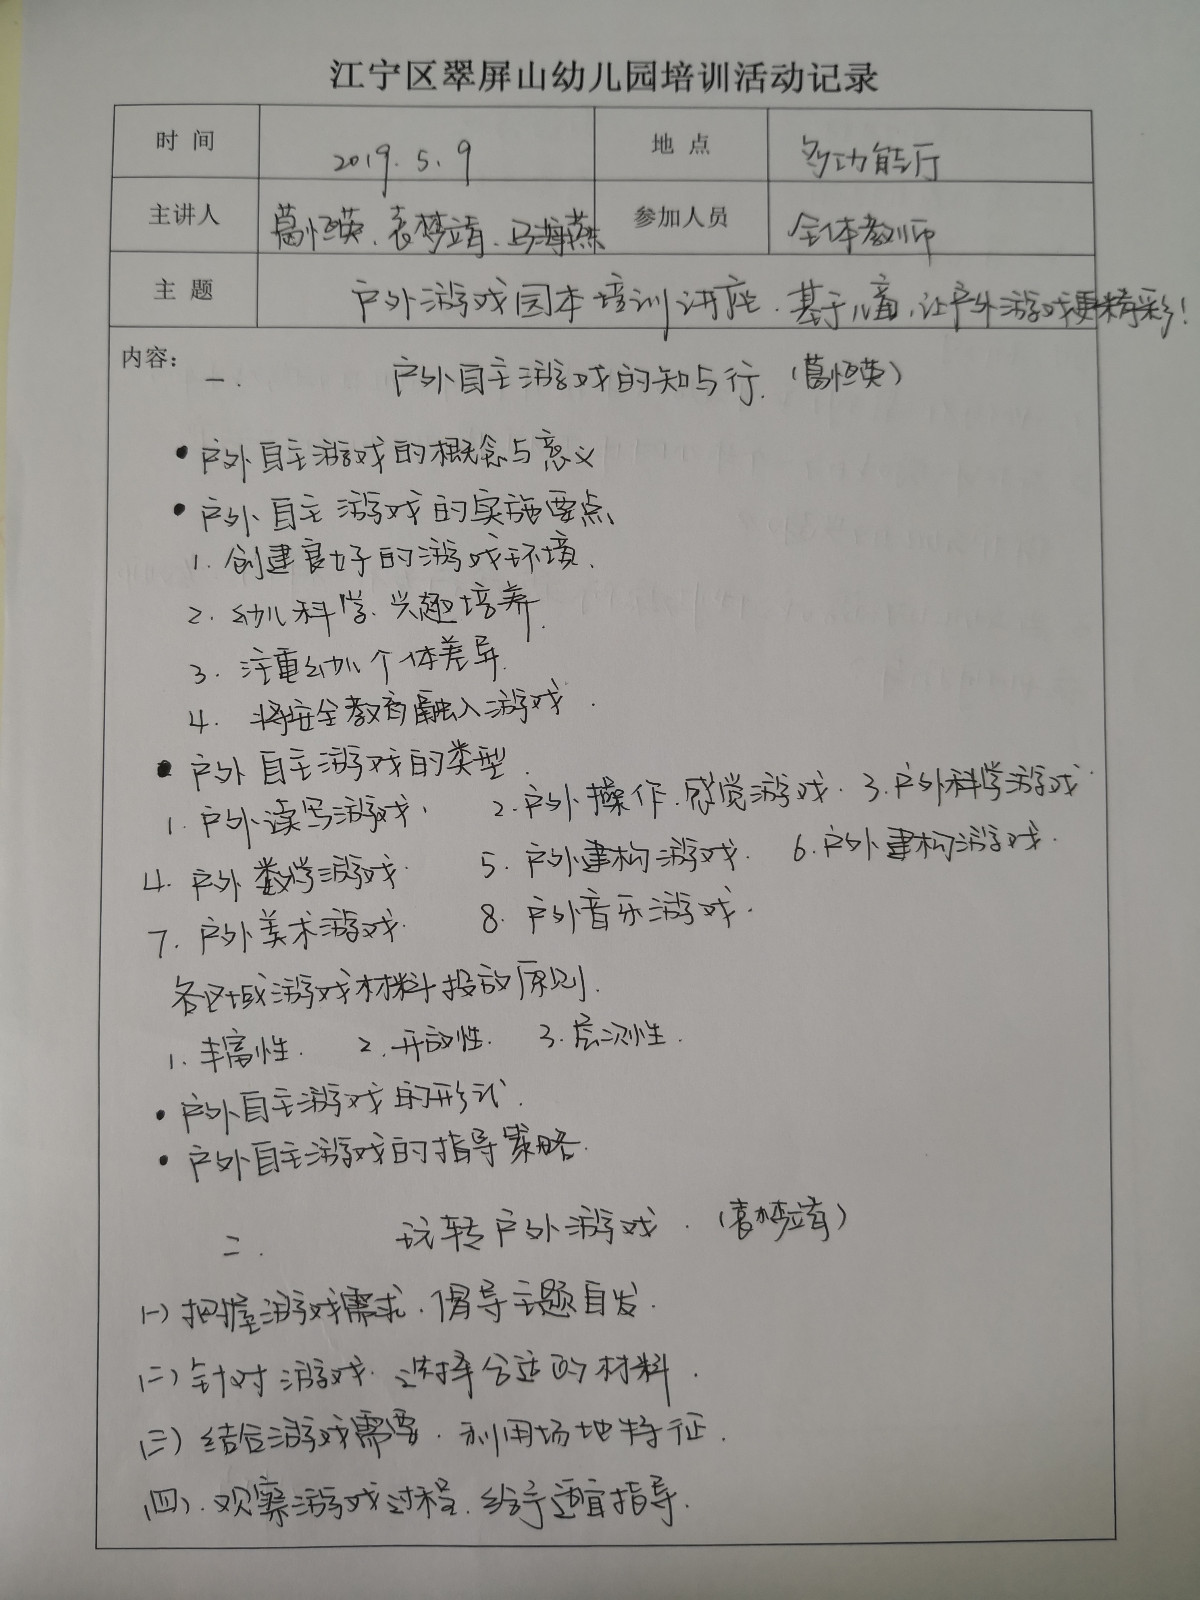 江宁区翠屏山幼儿园培训活动记录
时 间 2019.5.9 地 点 多功能厅
主讲人 葛恒英、袁梦靖、马海燕 参加人员 全体教师
主 题 户外游戏园本培训讲座.基于儿童,让户外游戏更精彩!
内容:
一. 户外自主游戏的知与行.(葛恒英)
• 户外自主游戏的概念与意义
• 户外自主游戏的实施要点
1. 创建良好的游戏环境.
2. 幼儿科学、兴趣培养.
3. 注重幼儿个体差异.
4. 将安全教育融入游戏.
• 户外自主游戏的类型.
1. 户外读写游戏. 2. 户外操作、感觉游戏. 3. 户外科学游戏.
4. 户外数学游戏. 5. 户外建构游戏. 6. 户外建构游戏.
7. 户外美术游戏. 8. 户外音乐游戏.
各区域游戏材料投放原则.
1. 丰富性. 2. 开放性. 3. 层次性.
• 户外自主游戏的形式.
• 户外自主游戏的指导策略.
二. 玩转户外游戏.(袁梦靖)
(一)把握游戏需求.倡导主题自发.
(二)针对游戏.选择合适的材料.
(三)结合游戏需要.利用场地特征.
(四).观察游戏过程.给予适宜指导.